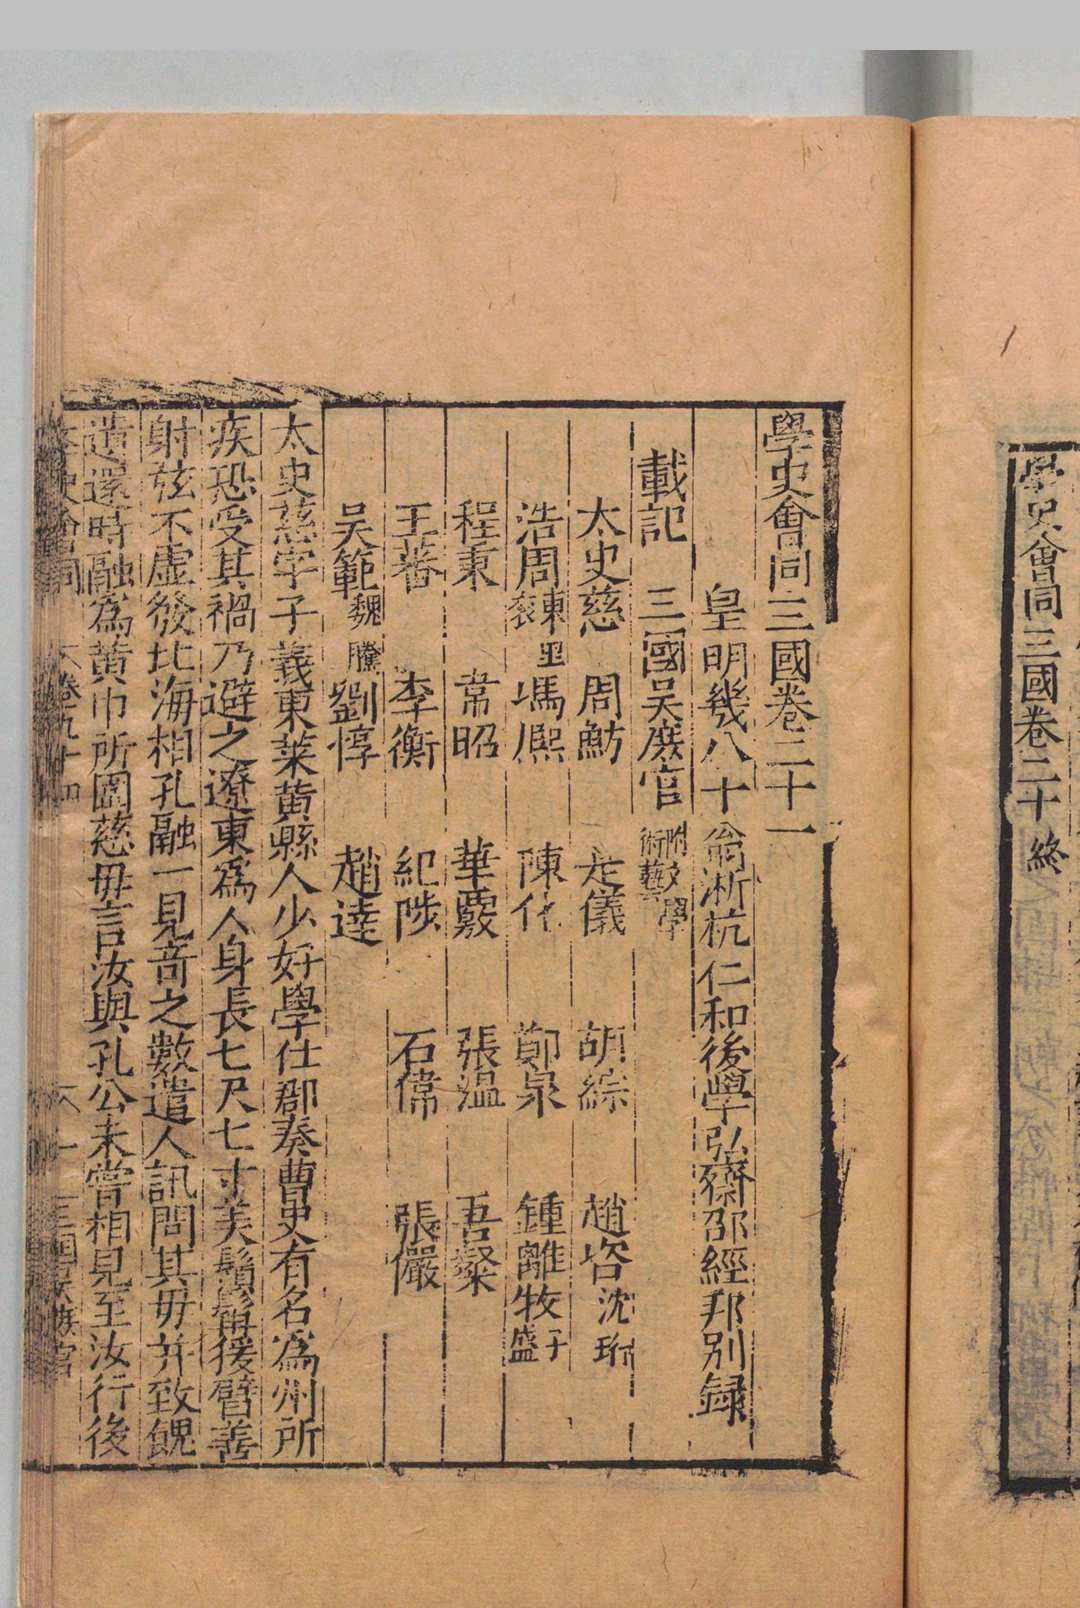 學史會同三國卷二十終
學史會同三國卷二十一
皇明幾八十翁浙杭仁和後學弘齋邵經邦別錄
載記 三國吳庶官 附文學術藝
太史慈 周魴 是儀 胡綜 趙咨 沈珩
浩周 東里衮 馮熈 陳化 鄭泉 鍾離牧 子盛
程秉 韋昭 華覈 張溫 吾粲
王蕃 李衡 紀陟 石偉 張儼
吳範 魏騰 劉惇 趙達
太史慈字子義東萊黃縣人少好學仕郡奏曹史有名爲州所
疾恐受其禍乃避之遼東爲人身長七尺七寸美鬚髯援臂善
射弦不虛發北海相孔融一見奇之數遣人訊問其毋并致餽
遺還時融爲黃巾所圍慈毋言汝與孔公未嘗相見至汝行後
學史會同 卷九十四 一 三國吳庶官